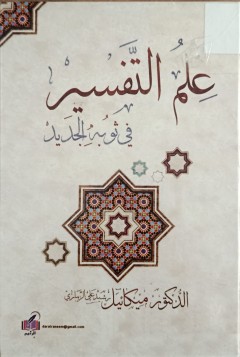 علم التفسير
في ثوبه الجديد
الدكتور ميكائيل رشيد علي الزيباري